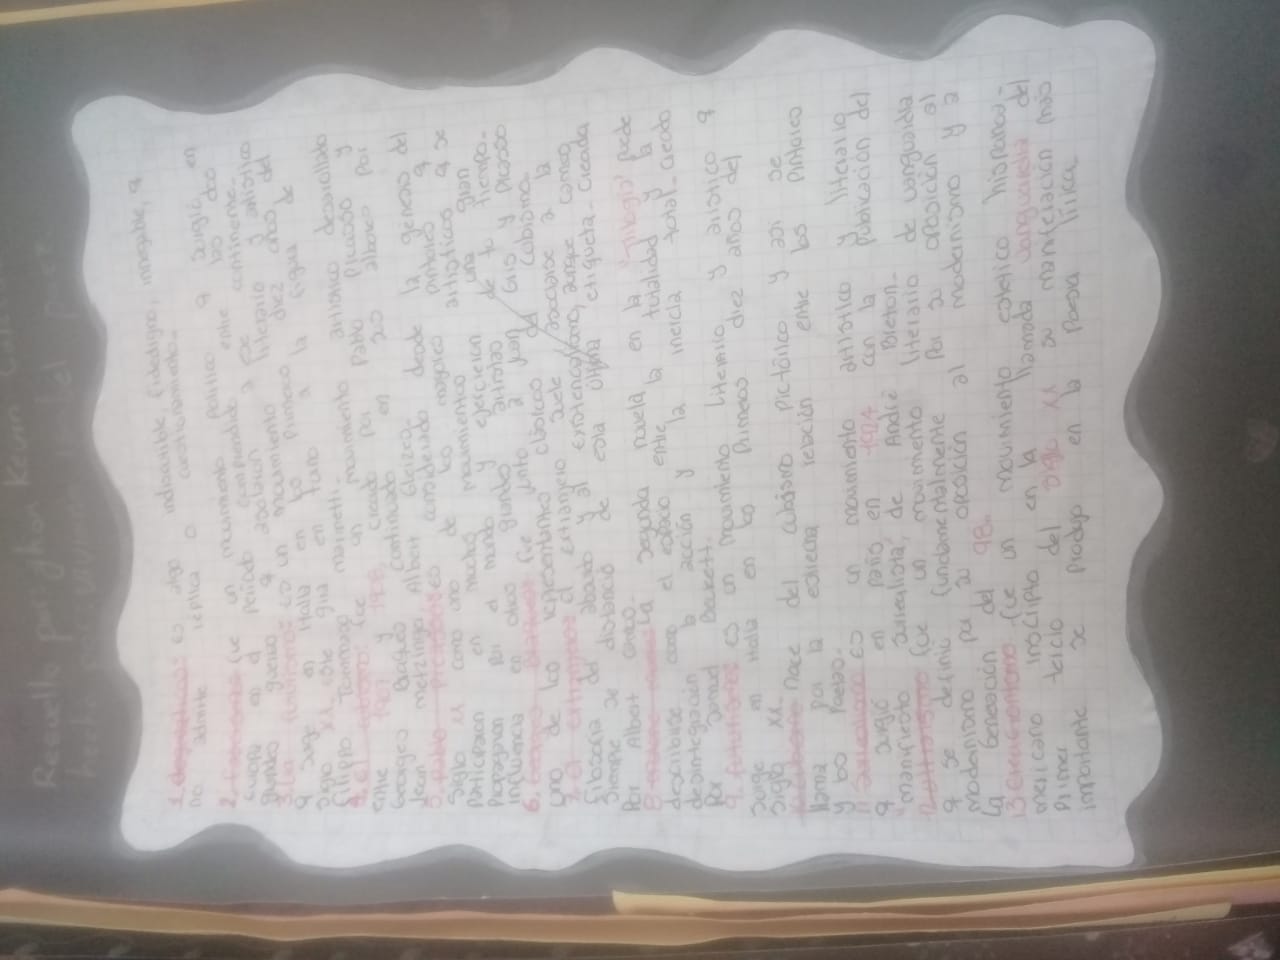 Recuello por ghon Kevin
hecho
1. dogmatico: es algo indiscutible, fidedigno, innegable, q
no admite replica o cuestionamiento.
2. fascismo fue un movimiento politico q surgió en
europa en el periodo comprendido entre las dos
guerras q asolaron a ese continente.
3. El futurismo: es un movimiento literario y artistico
q surge en italia en los primeros diez años del
siglo XX este gira en torno a la figura de
filippo tommaso marinetti.
4. el cubismo fue un movimiento artistico desarrollado
entre 1907 y 1928, creado por pablo picasso y
Georges Braques continuado por en 20 albores por
Jean metzinger Albert Gleizes.
5. pablo picasso es considerado desde la génesis del
siglo XX como uno de los mayores pintores q
participaron en muchos movimientos artisticos q se
propagaron por el mundo y ejercieron una gran
influencia en otros grandes artistas de tu tiempo.
6. fue junto a juan Gris y Picasso
uno de los representantes clasicos del cubismo.
7. el extranjero el extranjero suele asociarse a la
filosofia del absurdo y al existencialismo, aunque camus
siempre se distanció de esta última etiqueta. creada
por Albert camus.
8. la segunda novela en la "Trilogia" puede
describirse como el espacio entre la totalidad y la
desintegracion la acción y la inercia total. creado
por Samuel Beckett.
9. futurismo es un movimiento literario y artistico q
surge en italia en los primeros diez años del
siglo XX.
nace del cubismo pictórico y asi se
llama por la estrecha relación entre los pintores
y los poetas.
11. surrealismo es un movimiento artistico y literario
q surgió en paris en 1924 con la publicación del
"manifiesto surrealista", de André Breton.
12. ultraismo fue un movimiento literario de vanguardia
q se definió fundamentalmente por su oposición al
modernismo por su oposición al modernismo y a
la Generación del 98.
13. Estridentismo fue un movimiento estético hispanoa-
mericano inscripto en la llamada vanguardia del
primer tercio del siglo XX su manifestacion más
importante se produjo en la poesía lírica